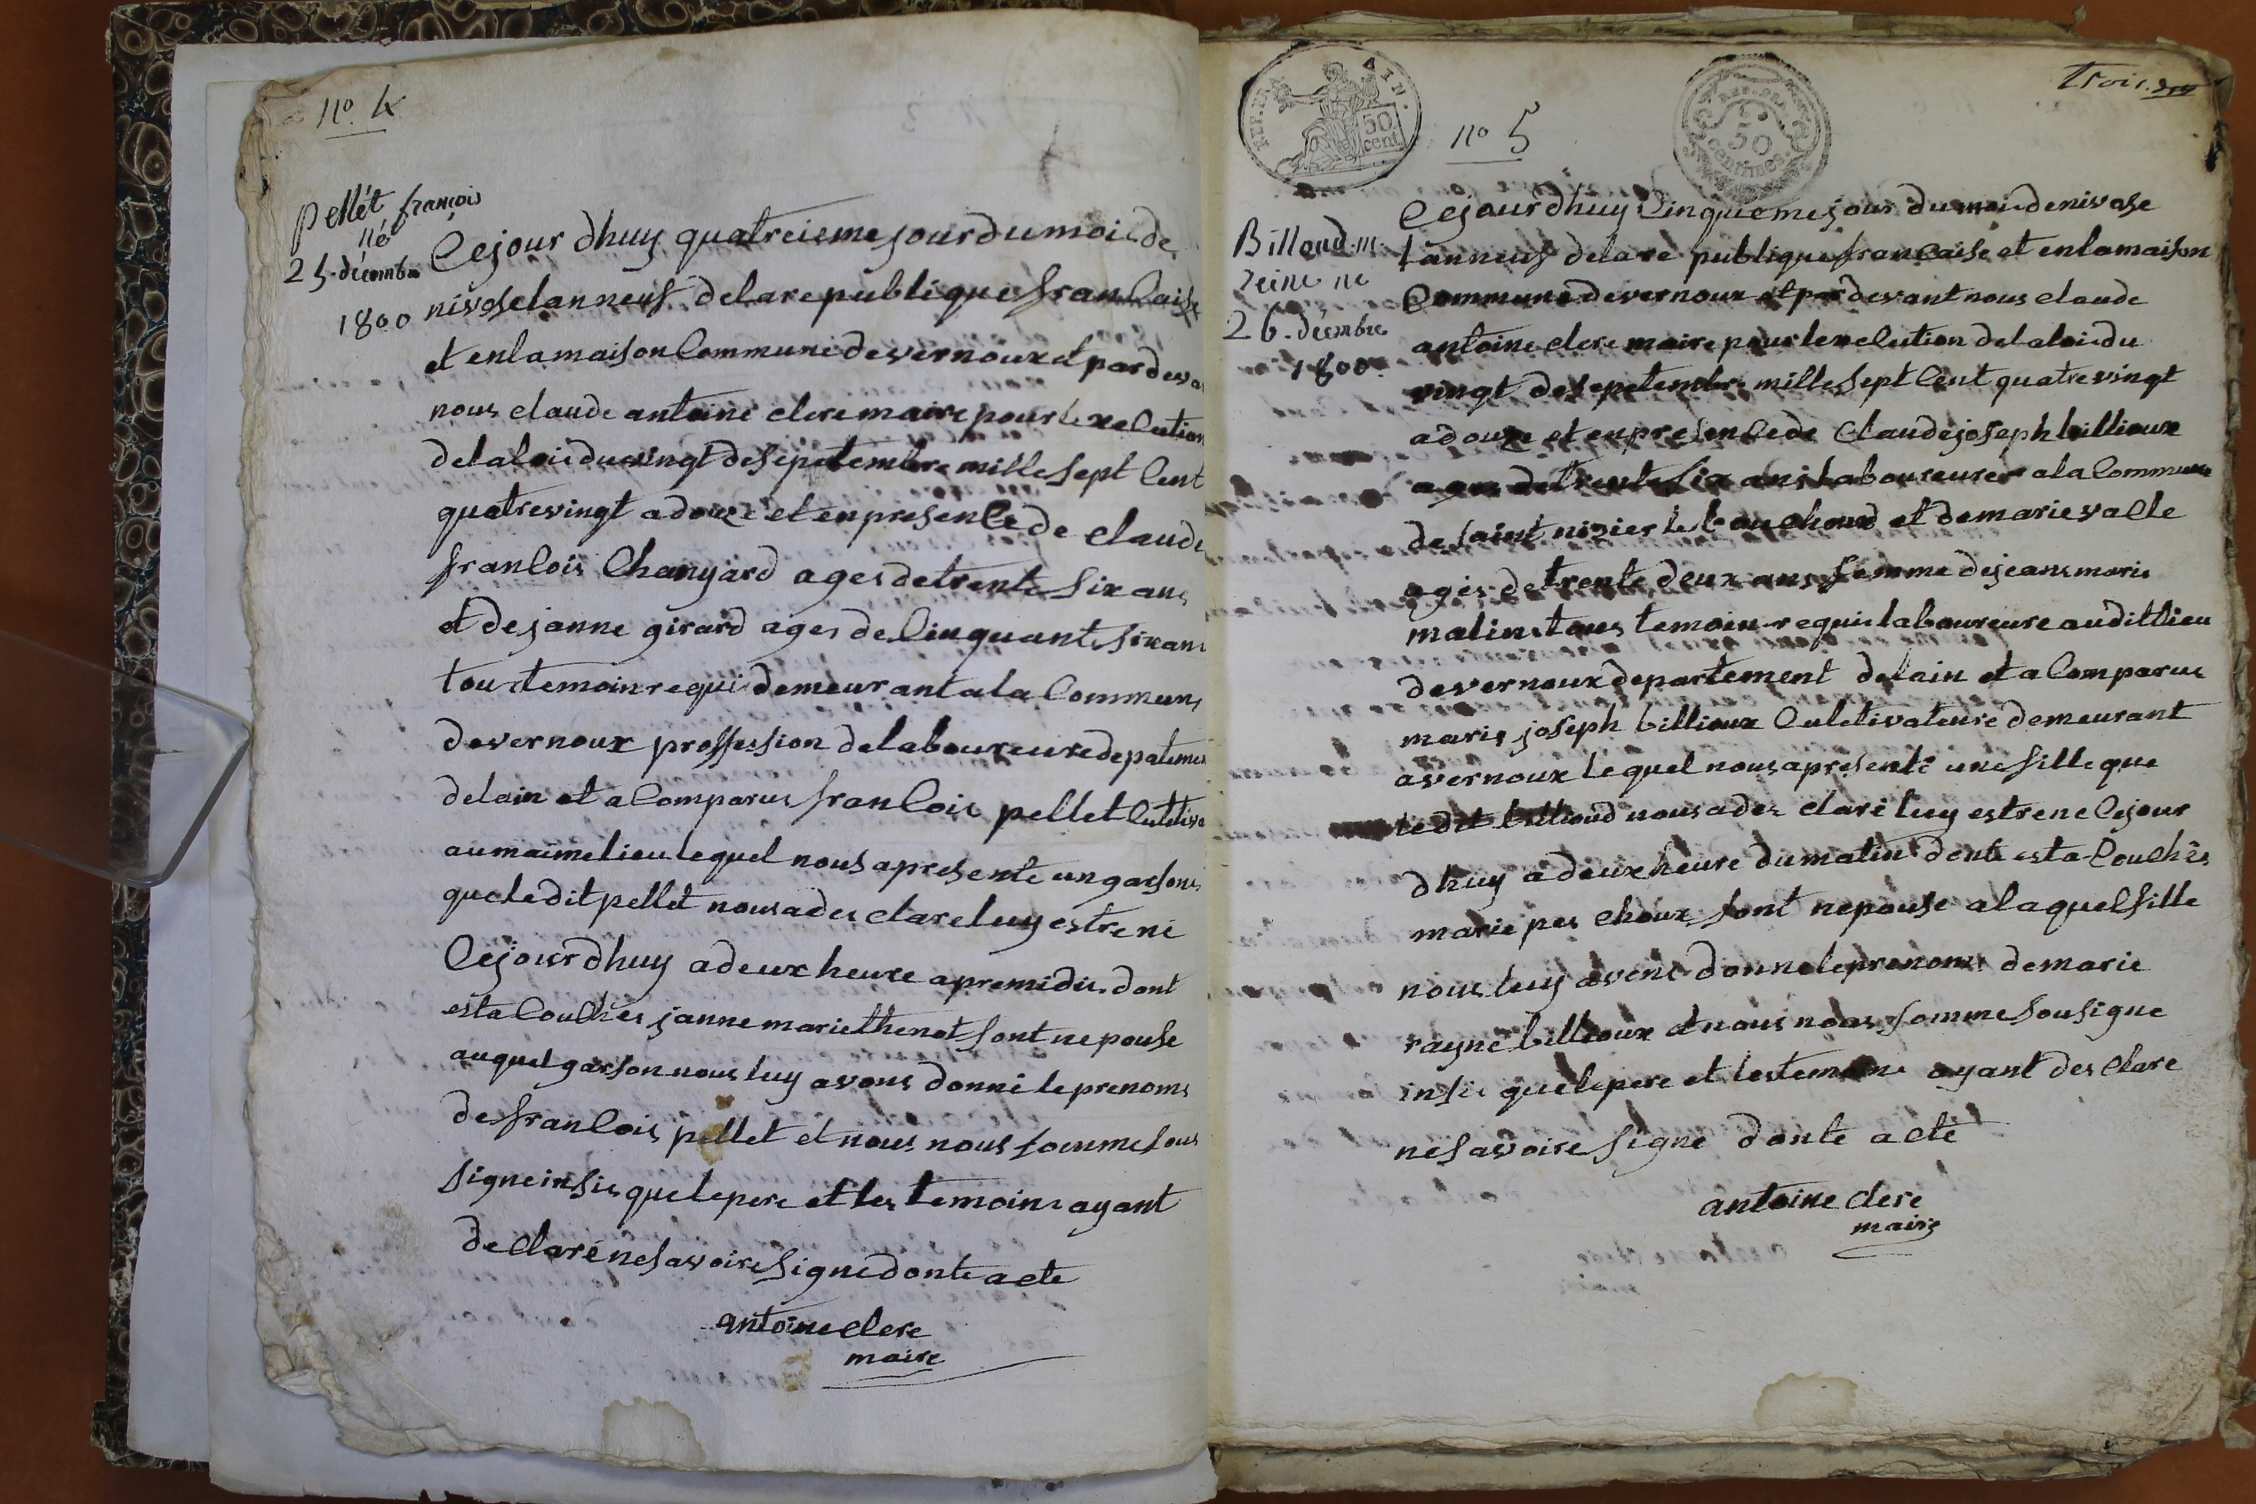 no. 4
pellét françois
né
25. décembre
1800
Cejour dhuy quatreieme jour du mois de
nivose lan neuf de la republique francaise
et en la maison Commune de vernoux et par deva
nous claude antoine clere maire pour lexecution
de la loi du vingt de sepetembre mille sept Cent
quatrevingt a douze et en presence de claude
francois Changard ages de trente six ans
et de janne girard ages de Cinquante six ans
tous temoin requi demeurant a la Commune
de vernoux proffession de laboureure depateme
de lain et a Comparus francois pellet Culetiva
au maime lieu lequel nous a presente un garsons
que le dit pellet nous a des clare luy estre ne
Cejour dhuy a deux heure apremidis dont
est a Couches janne marie thenot sont nepouse
au quel garson nous luy avons donné le prenoms
de francois pellet et nous nous somme sous
signe insis que le pere et les temoins ayant
declaré ne savoire signe donte acte
antoine clere
maire
trois.
REP. FRA. AIN.
50 cent
REP. FRA.
50
centimes
no 5
Billoud m.
reine ne
26. décembre
1800.
Cejour dhuy Cinquieme jour du mois de nivose
lan neuf de la re publique francaise et en la maison
Commune de vernoux et par devant nous claude
antoine clere maire pour lexecution de la loi du
vingt de sepetembre mille sept Cent quatre vingt
a douze et en presence de Claude joseph billioux
ages de trente six ans laboureure a la Commune
de saint nizier le bouchoud et de marie valle
ages de trente deux ans femme de jeans marie
matin tous temoin requis laboureure audit lieu
de vernoux departement de lain et a Comparus
marie joseph billioux Culetivateure demeurant
a vernoux lequel nous a presenté une fille que
le dit billioud nous a des claré luy estre ne Cejour
dhuy a deux heure du matin donte est a Couchés
marie pes choux sont nepouse a laquel fille
nous luy avons donne le prenoms de marie
rayne billioux et nous nous somme sousigne
insis que le pere et les temoins ayant des Clare
ne savoire signe donte acte
antoine clere
maire